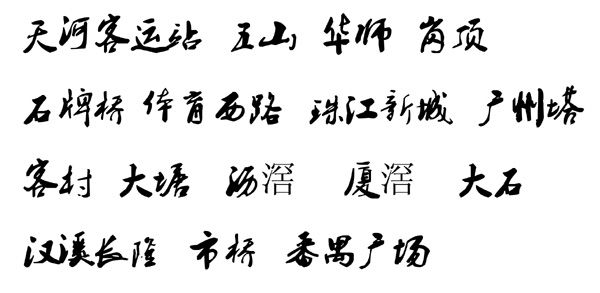 天河客运站 五山 华师 岗顶
石牌桥 体育西路 珠江新城 广州塔
客村 大塘 沥滘 厦滘 大石
汉溪长隆 市桥 番禺广场